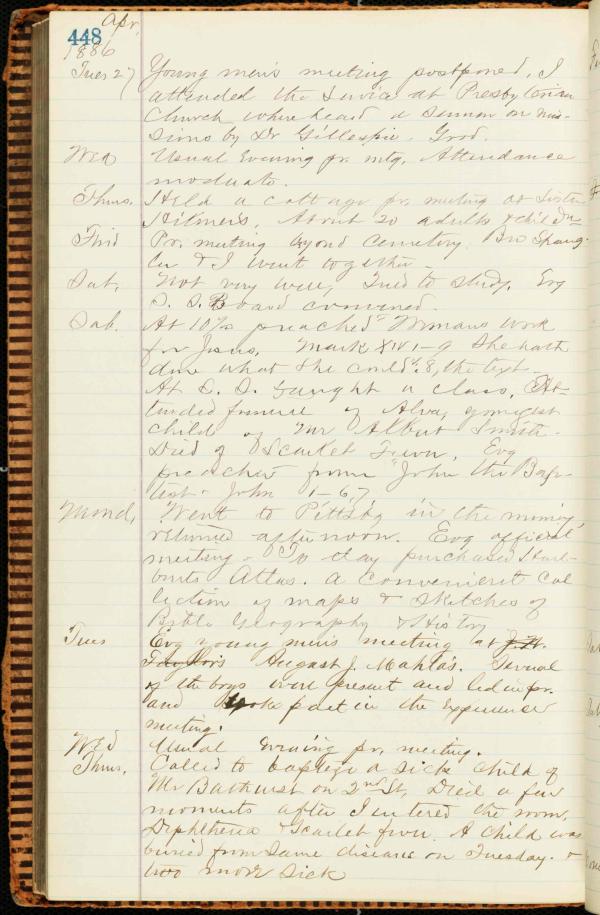 448
Apr.
1886
Tues 27 Young men's meeting postponed. I
attended the Service at Presbyterian
Church where heard a sermon on mis-
sions by Dr Gillespie. Good.
Wed Usual Evening pr. mtg. Attendance
moderate.
Thurs. Held a cottage pr. meeting at Sister
Hilmer's. About 20 adults & children
Frid Pr. meeting beyond Cemetery. Bro Spang-
ler & I went together.
Sat. Not very well, Tried to study. Evg
S. S. Board convened.
Sab. At 10 1/2 preached "Womans Work
for Jesus. Mark XIV 1-9 She hath
done what she could". 8, the text.
At S. S. taught a class. At-
tended funeral of Alva, youngest
child of Mr Albert Smith.
Died of Scarlet Fever. Evg
preached from "John the Bap-
tist. John 1-6,7
Mond, Went to Pittsbg in the morning,
returned afternoon. Evg official
meeting. To day purchased Hurl-
buts Atlas. a convenient col
lection of maps & sketches of
Bible Geography & History
Tues Evg young men's meeting at J. W.
Taylors August J. Mahla's. Several
of the boys were present and led in pr.
and took part in the Experience
meeting.
Wed Usual Evening pr. meeting.
Thurs. Called to baptize a sick child of
Mr Bathurst on 2nd St, Died a few
moments after I entered the room,
Diphtheria & Scarlet fever. A child was
buried from same disease on Tuesday. &
two more sick